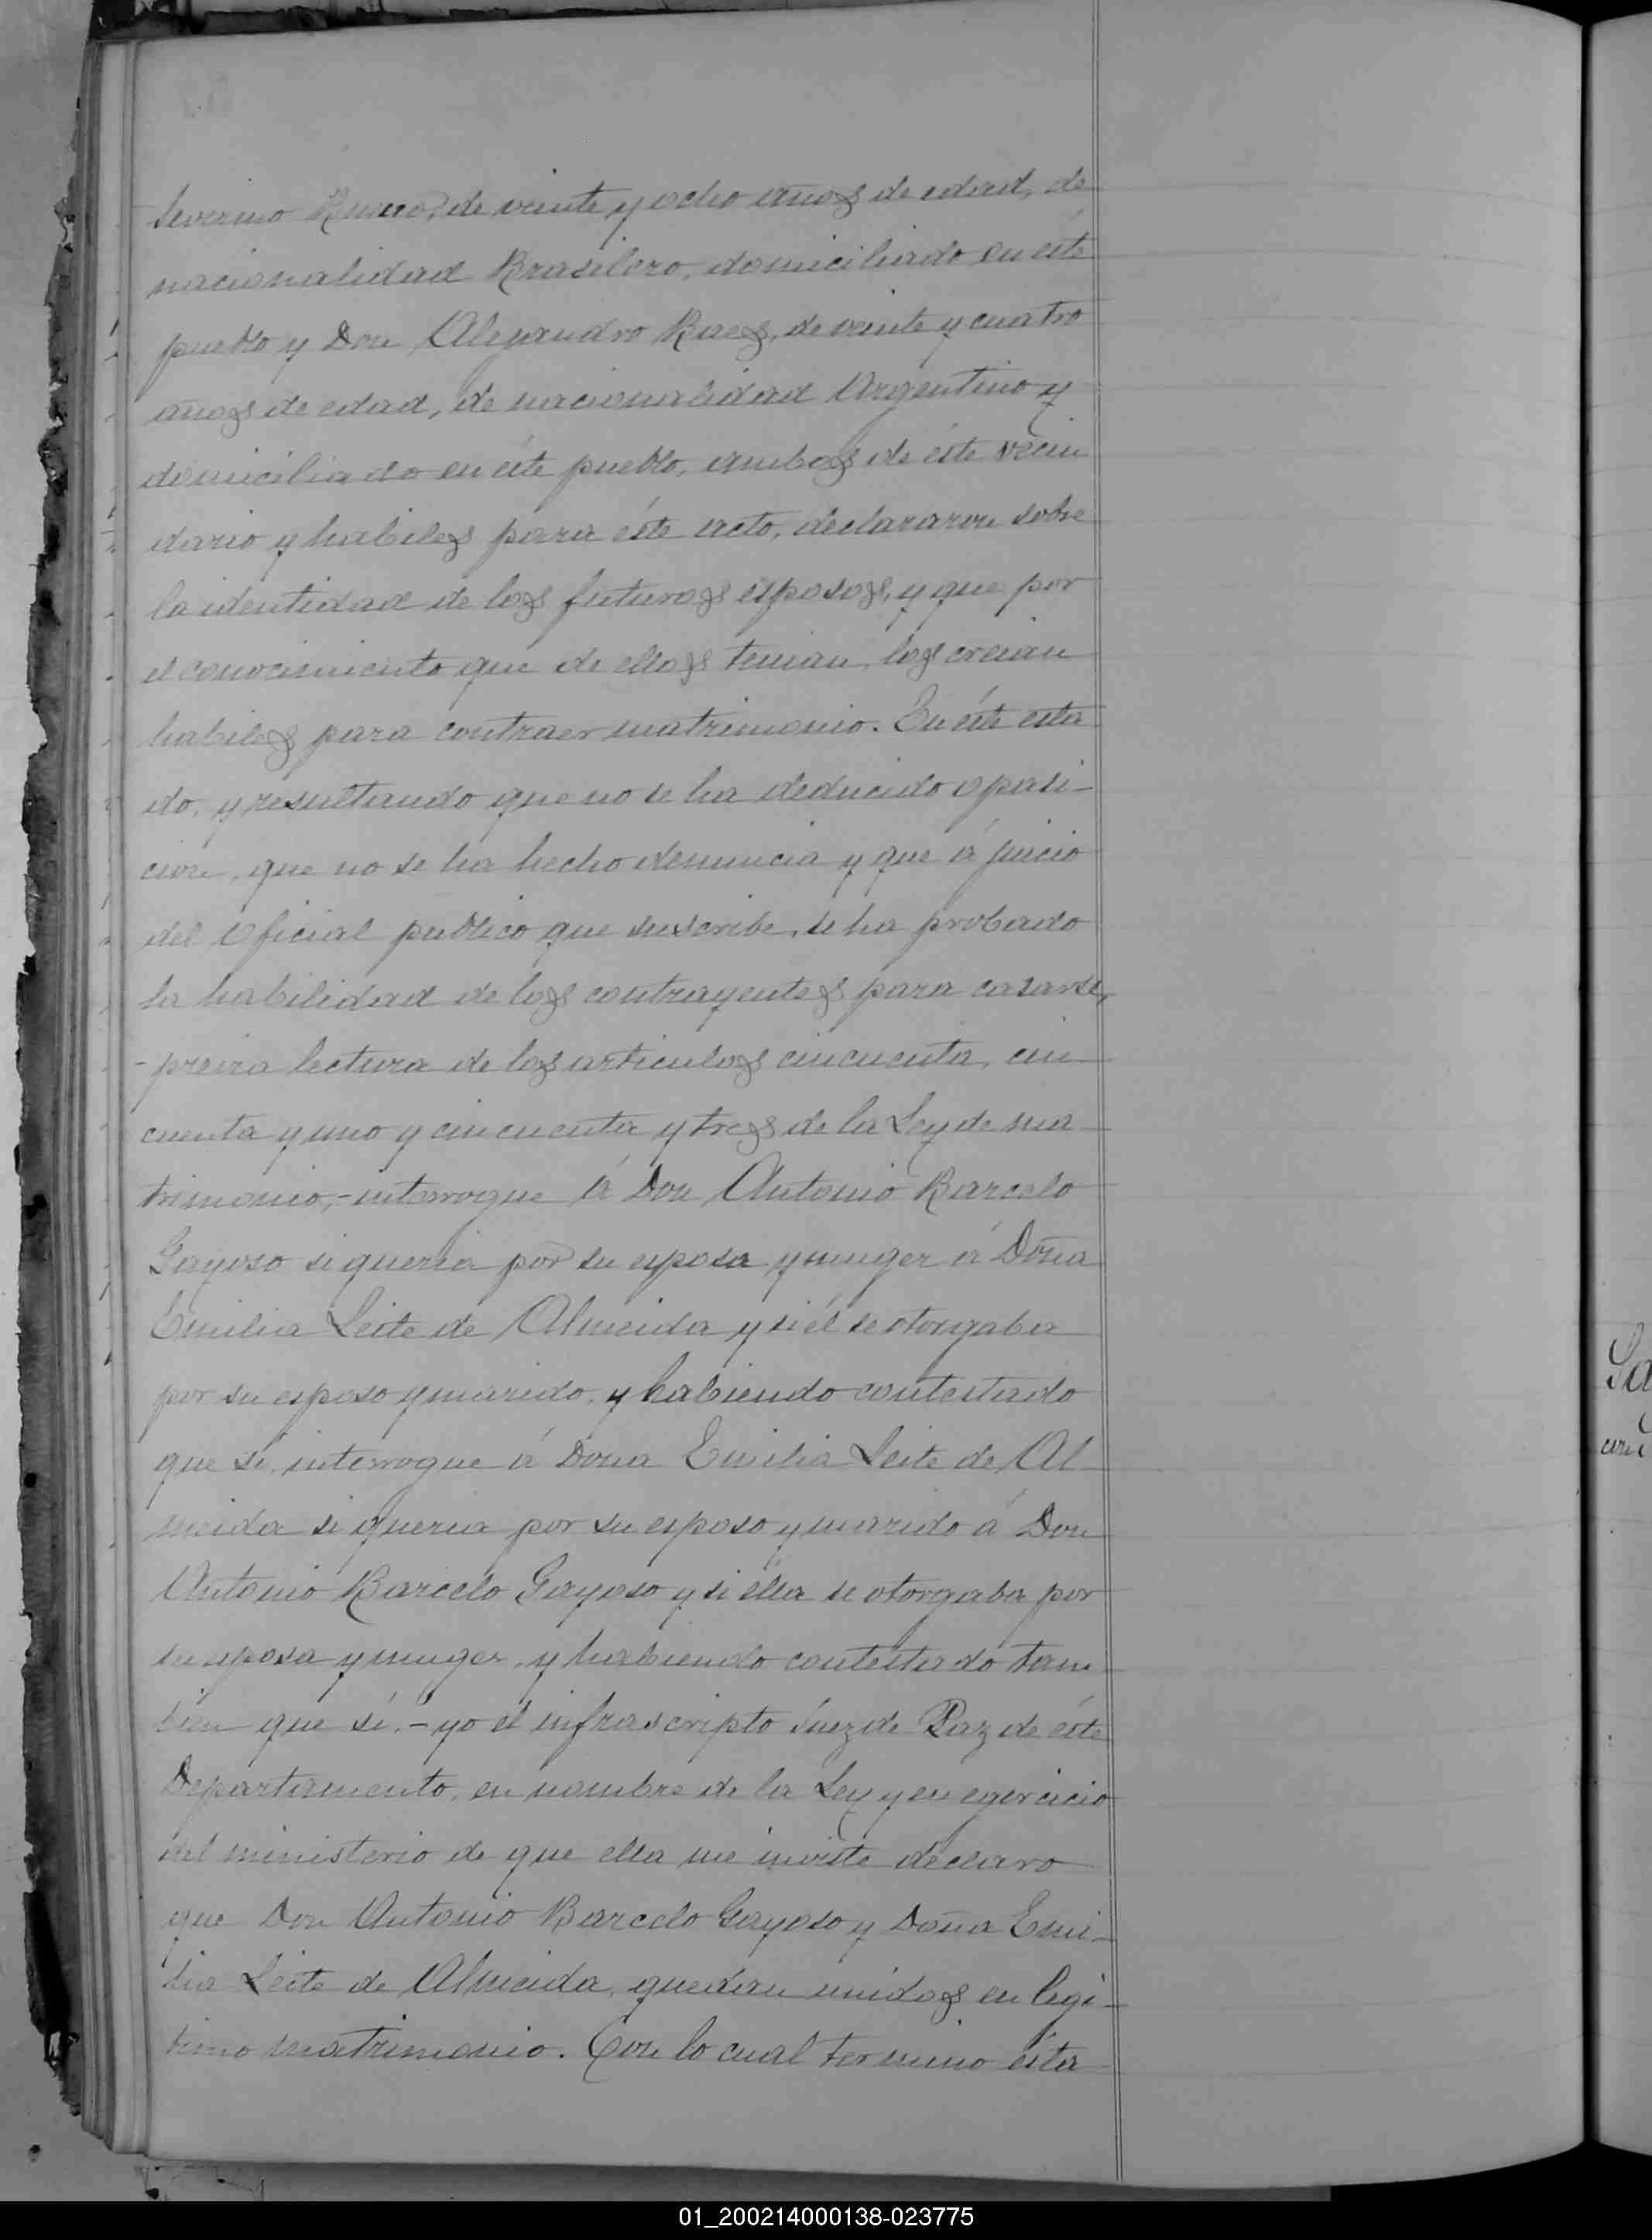 Severino de veinte y ocho años de edad, de
nacionalidad Brasilero, domiciliado en éste
pueblo y Don Alejandro de veinte y cuatro
años de edad, de nacionalidad Argentino y
domiciliado en éste pueblo, ambos de éste vecin
dario y habiles para éste acto, declararon sobre
la identidad de los futuros esposos, y que por
el conocimiento que de ellos tenian, los creian
habiles para contraer matrimonio. En éste esta
do, y resultando que no se ha deducido oposi-
cion, que no se ha hecho denuncia y que á juicio
del Oficial publico que suscribe, se ha probado
la habilidad de los contrayentes para casarse,
-previa lectura de los articulos cincuenta, cin
cuenta y uno y cincuenta y tres de la Ley de ma
trimonio,-interrogue á Don Antonio Barcelo
Gayoso si queria por su esposa y muger á Doña
Emilia Leite de Almeida y si él se otorgaba
por su esposo y marido, y habiendo contestado
que sí, interrogue á Doña Emilia Leite de Al
meida si queria por su esposo y marido á Don
Antonio Barcelo Gayoso y si élla se otorgaba por
su esposa y muger, y habiendo contestado tam
bien que sí,-yo el infrascripto Juez de Paz de éste
Departamento, en nombre de la Ley y en egercicio
del ministerio de que ella me inviste declaro
que Don Antonio Barcelo Gayoso y Doña Emi-
lia Leite de Almeida, quedan unidos en legi-
timo matrimonio. Con lo cual termino ésta
01_200214000138-023775